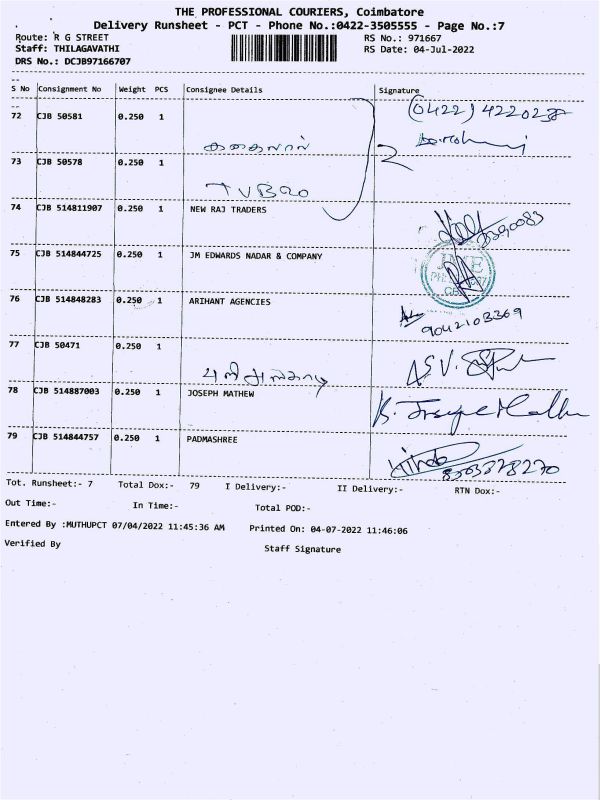 THE PROFESSIONAL COURIERS, Coimbatore
Delivery Runsheet - PCT - Phone No.:0422-3505555 - Page No.:7
Route: R G STREET RS No.: 971667
Staff: THILAGAVATHI RS Date: 04-Jul-2022
DRS No.: DCJB97166707
S No Consignment No Weight PCS Consignee Details Signature
72 CJB 50581 0.250 1
73 CJB 50578 0.250 1
74 CJB 514811907 0.250 1 NEW RAJ TRADERS
75 CJB 514844725 0.250 1 JM EDWARDS NADAR & COMPANY
76 CJB 514848283 0.250 1 ARIHANT AGENCIES
9042103369
77 CJB 50471 0.250 1
78 CJB 514887003 0.250 1 JOSEPH MATHEW
79 CJB 514844757 0.250 1 PADMASHREE
Tot. Runsheet:- 7 Total Dox:- 79 I Delivery:- II Delivery:- RTN Dox:-
Out Time:- In Time:- Total POD:-
Entered By :MUTHUPCT 07/04/2022 11:45:36 AM Printed On: 04-07-2022 11:46:06
Verified By Staff Signature